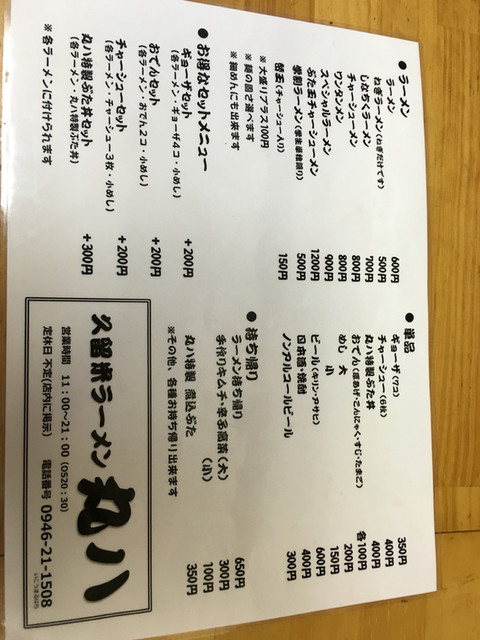 ● ラーメン
ラーメン 600円
ねぎラーメン(ねぎだけです) 500円
しなちくラーメン 700円
チャーシューメン 800円
ワンタンメン 800円
スペシャルラーメン 900円
ぶた玉チャーシューメン 1200円
学割ラーメン(学生単独限り) 500円
替玉(チャーシュー入り) 150円
※ 大盛りプラス100円
※ 麺の固さ選べます
※ 細めんにも出来ます
● お得なセットメニュー
ギョーザセット + 200円
(各ラーメン・ギョーザ4コ・小めし)
おでんセット + 200円
(各ラーメン・おでん2コ・小めし)
チャーシューセット + 200円
(各ラーメン・チャーシュー3枚・小めし)
丸八特製ぶた丼セット + 300円
(各ラーメン・丸八特製ぶた丼)
※各ラーメンに付けられます
● 単品
ギョーザ(7コ) 350円
チャーシュー(6枚) 400円
丸八特製ぶた丼 400円
おでん(厚あげ・こんにゃく・すじ・たまご) 各100円
めし 大 200円
小 150円
ビール(キリン・アサヒ) 600円
日本酒・焼酎 400円
ノンアルコールビール 300円
● 持ち帰り
ラーメン持ち帰り 650円
手作りキムチ・辛子高菜(大) 300円
(小) 100円
丸八特製 煮込ぶた 350円
※その他、各種お持ち帰り出来ます
久留米ラーメン 丸八
営業時間 11:00~21:00 (OS20:30)
定休日 不定(店内に掲示) 電話番号 0946-21-1508